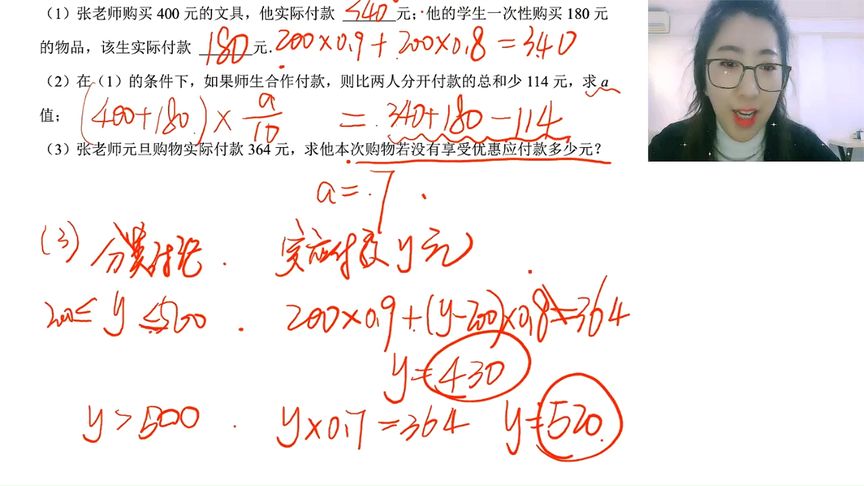 （1）张老师购买 400 元的文具，他实际付款 340 元；他的学生一次性购买 180 元
的物品，该生实际付款 180 元. 200×0.9+200×0.8=340
（2）在（1）的条件下，如果师生合作付款，则比两人分开付款的总和少 114 元，求 a
值； (400+180)×a/10 = 340+180-114
（3）张老师元旦购物实际付款 364 元，求他本次购物若没有享受优惠应付款多少元？
a=7.
(3) 分类讨论. 实应付款y元
200≤y≤500. 200×0.9+(y-200)×0.8=364
y=430
y>500. y×0.7=364 y=520.